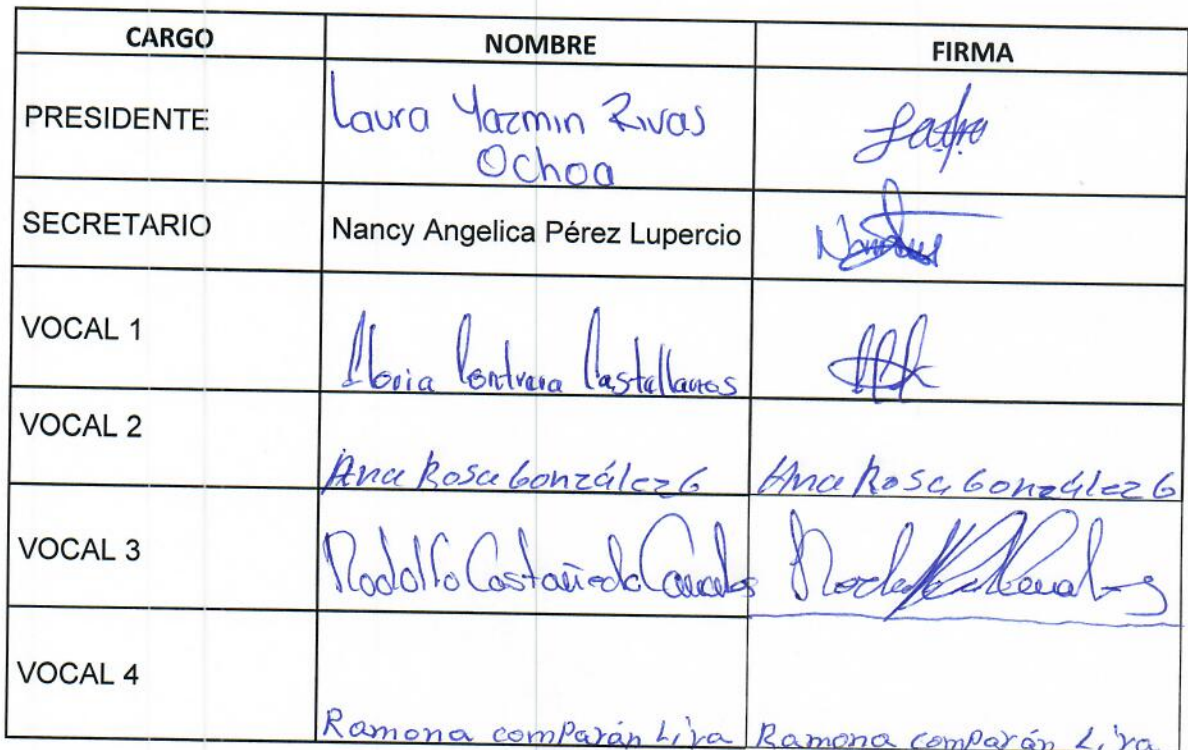 CARGO NOMBRE FIRMA
PRESIDENTE Laura Yazmin Rivas
Ochoa
SECRETARIO Nancy Angelica Pérez Lupercio
VOCAL 1 Castellanos
VOCAL 2 Ana Rosa González G Ana Rosa González G
VOCAL 3 Rodolfo Castañeda
VOCAL 4
Ramona comParán Lira Ramona comParán Lira